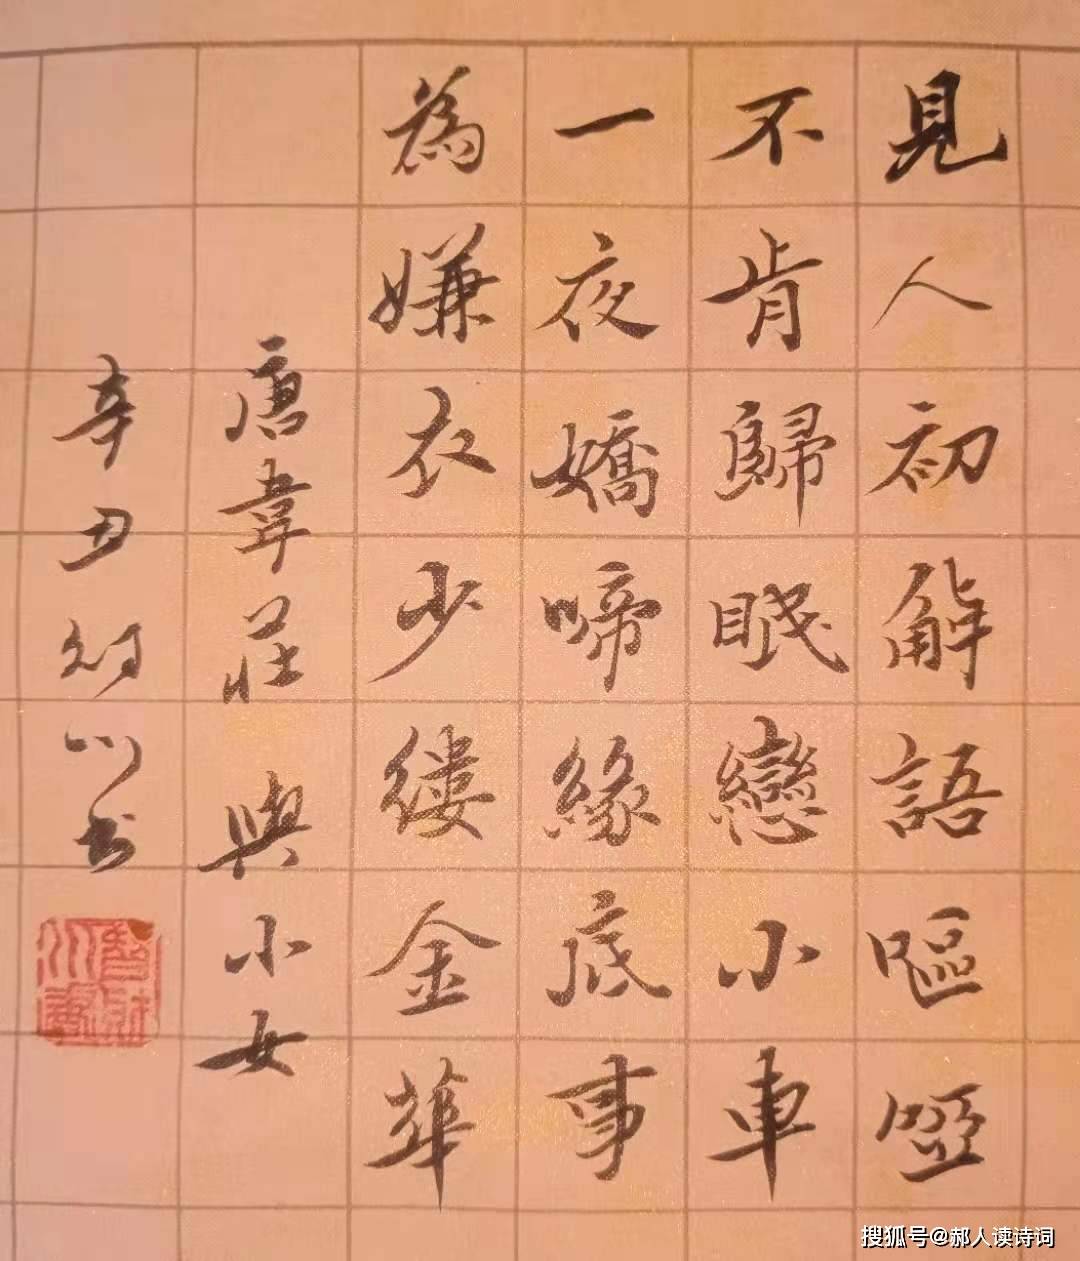 見人初解語嘔啞
不肯歸眠戀小車
一夜嬌啼緣底事
為嫌衣少縷金華
唐韋莊 與小女
辛丑 川书
搜狐号@郝人读诗词